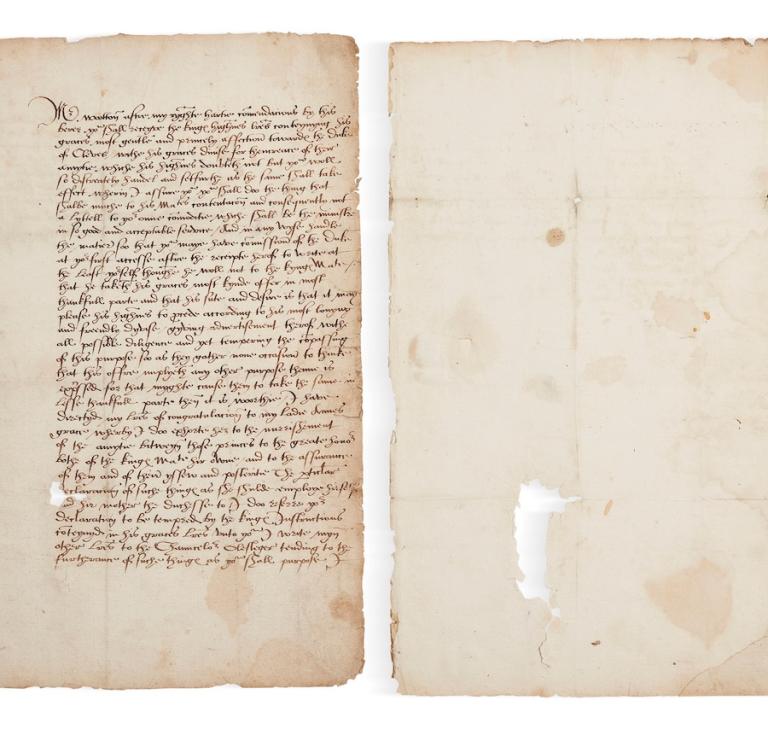 Mr. wotton after my ryghte hartie comendacions by this
berer ye shall receyve the kings highnes lres conteynyng his
graces most gentle and princely affection towards the Duke
of Cleves withe his graces devise for thencreace of their
amytie whiche his highnes doubteth not but ye woll
so discreately handel and setfurthe as the same shall take
effect wherin I assure you ye shall doo the thing that
shalbe muche to his Mates contentacon and consequentlie not
a lyttell to yor owne comoditie whiche shall be the
in so gode and acceptable service And in any wyse handle
the matier soo that ye maye have comission of the Duke
at yor first accesse after the receipte herof to write at
the least yorself thoughe he woll not to the kyngs Mate
that he taketh his graces most kynde offer in most
thankfull parte and that his sute and desire is that it may
please his highnes to procede according to his most
and freendly dyvise gyving advertisement therof withe
all possible diligence and yet tempering the compassing
of this purpose so as they gather none occasion to thinke
that this offre implyeth any other purpose thenne is
expressed for that myghte cause them to take the same in
lesse thankfull parte then it is worthie I have
directed my lres of congratulacion to my ladie Annes
grace wherby I doo exhorte her to the norrishement
of the amytie bitweyn those princes to the greate honor
bothe of the kings Mate hir owne and to the assurance
of them and of theyr yssew and posteritie The
declaracion of suche things as she shulde employe hirself
and hir mother the duchesse to I doo referre yor
declaracion to be tempred by the kings Instructions
conteyned in his graces lres unto you I write
other lres to the Chauncelor Olesleger tending to the
furtherance of suche things as ye shall purpose I